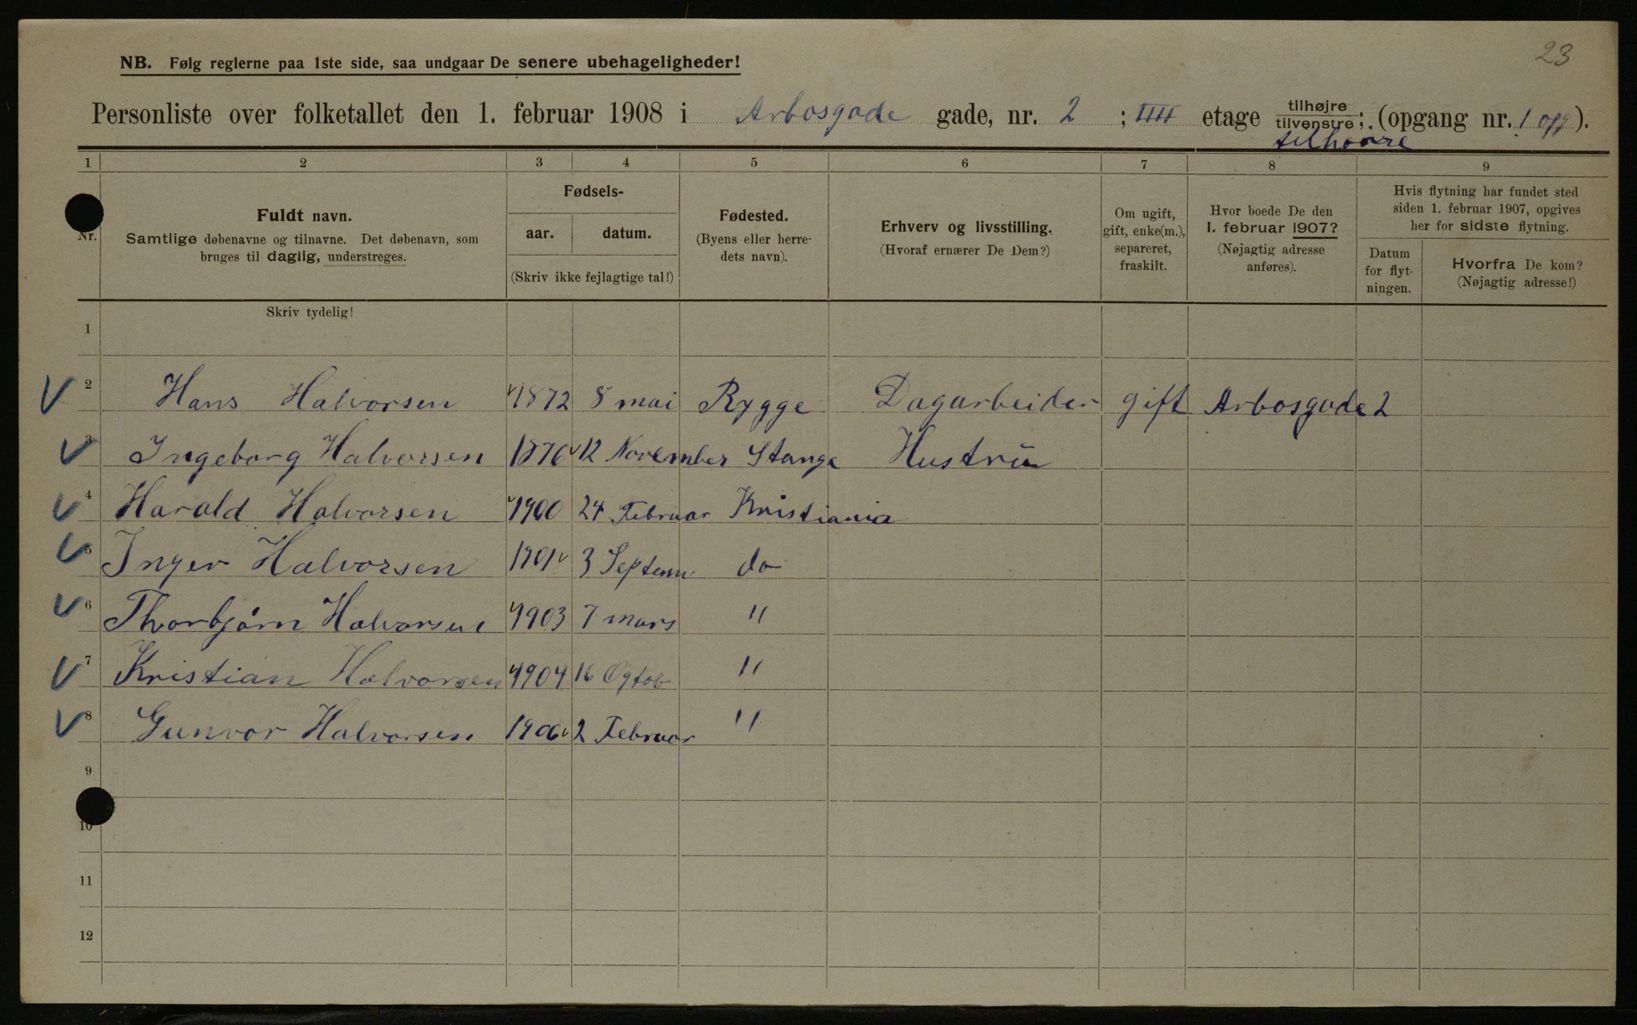 23
NB. Følg reglerne paa 1ste side, saa undgaar De senere ubehageligheder!
Personliste over folketallet den 1. februar 1908 i Arbosgade gade, nr. 2 ; IIII etage tilhøjre tilvenstre; (opgang nr. 1 opg).
tilhøire
1 2 3 4 5 6 7 8 9
Nr.
Fuldt navn.
Samtlige døbenavne og tilnavne. Det døbenavn, som
bruges til daglig, understreges.
Fødsels-
aar. datum.
(Skriv ikke fejlagtige tal!)
Fødested.
(Byens eller herre-
dets navn).
Erhverv og livsstilling.
(Hvoraf ernærer De Dem?)
Om ugift,
gift, enke(m.),
separeret,
fraskilt.
Hvor boede De den
1. februar 1907?
(Nøjagtig adresse
anføres).
Hvis flytning har fundet sted
siden 1. februar 1907, opgives
her for sidste flytning.
Datum
for flyt-
ningen.
Hvorfra De kom?
(Nøjagtig adresse!)
Skriv tydelig!
1
2 Hans Halvorsen 1872 8 mai Rygge Dagarbeider gift Arbosgade 2
3 Ingeborg Halvorsen 1876 12 November Stange Hustru
4 Harald Halvorsen 1900 24 Februar Kristiania
5 Inger Halvorsen 1901 3 Septem do
6 Thorbjørn Halvorsen 1903 7 mars "
7 Kristian Halvorsen 1904 16 Ogtob "
8 Gunvor Halvorsen 1906 2 Februar "
9
10
11
12